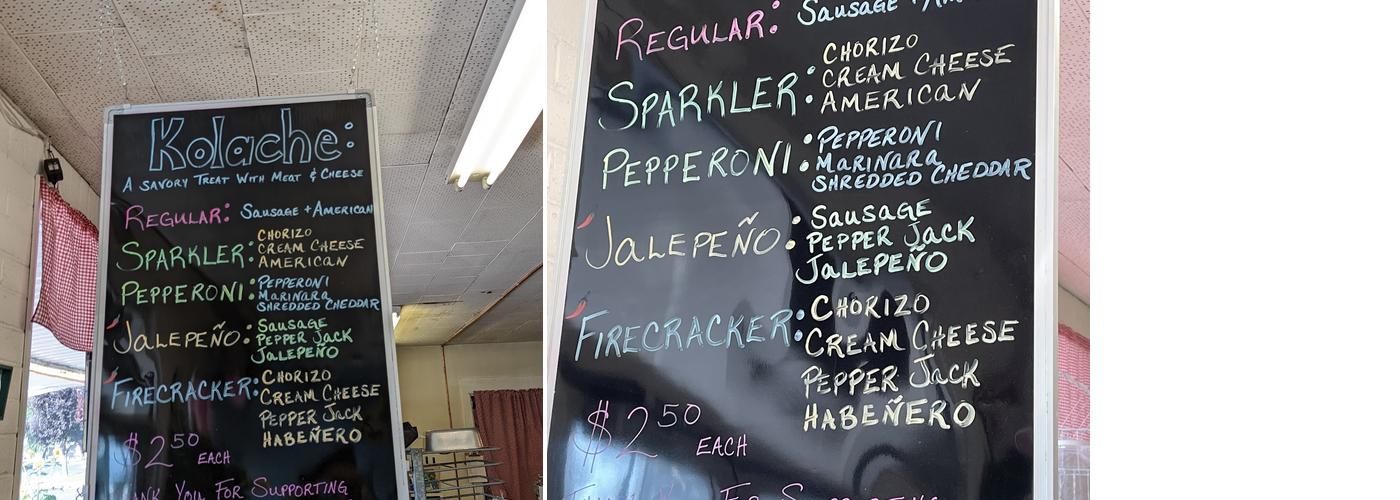 Kolache:
A SAVORY TREAT WITH MEAT & CHEESE
REGULAR: SAUSAGE + AMERICAN
SPARKLER: CHORIZO
CREAM CHEESE
AMERICAN
PEPPERONI: PEPPERONI
MARINARA
SHREDDED CHEDDAR
JALEPEÑO: SAUSAGE
PEPPER JACK
JALEPEÑO
FIRECRACKER: CHORIZO
CREAM CHEESE
PEPPER JACK
HABEÑERO
$2.50 EACH
THANK YOU FOR SUPPORTING
REGULAR: SAUSAGE +
SPARKLER: CHORIZO
CREAM CHEESE
AMERICAN
PEPPERONI: PEPPERONI
MARINARA
SHREDDED CHEDDAR
JALEPEÑO: SAUSAGE
PEPPER JACK
JALEPEÑO
FIRECRACKER: CHORIZO
CREAM CHEESE
PEPPER JACK
HABEÑERO
$2.50 EACH